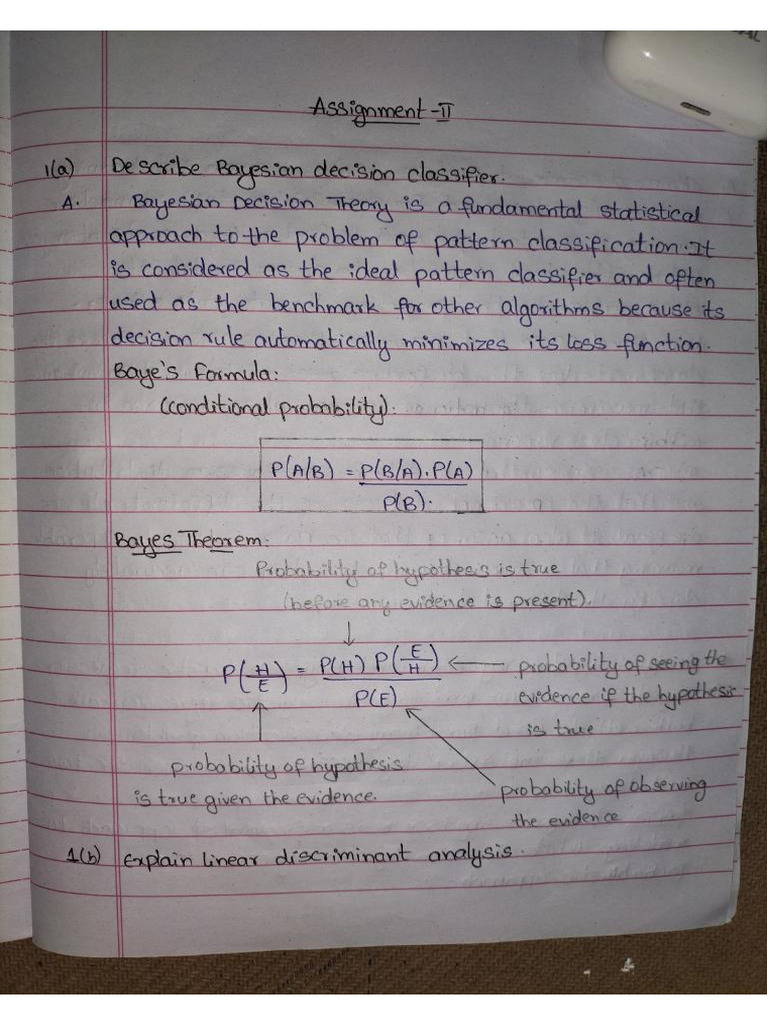 Assignment-II
1(a) Describe Bayesian decision classifier.
A. Bayesian Decision Theory is a fundamental statistical
approach to the problem of pattern classification. It
is considered as the ideal pattern classifier and often
used as the benchmark for other algorithms because its
decision rule automatically minimizes its loss function.
Baye's Formula:
(conditional probability):
P(A/B) = P(B/A).P(A)
P(B).
Bayes Theorem:
Probability of hypothesis is true
(before any evidence is present).
P(H/E) = P(H) P(E/H)
P(E)
probability of seeing the
evidence if the hypothesis
is true
probability of hypothesis
is true given the evidence.
probability of observing
the evidence
1(b) Explain linear discriminant analysis.